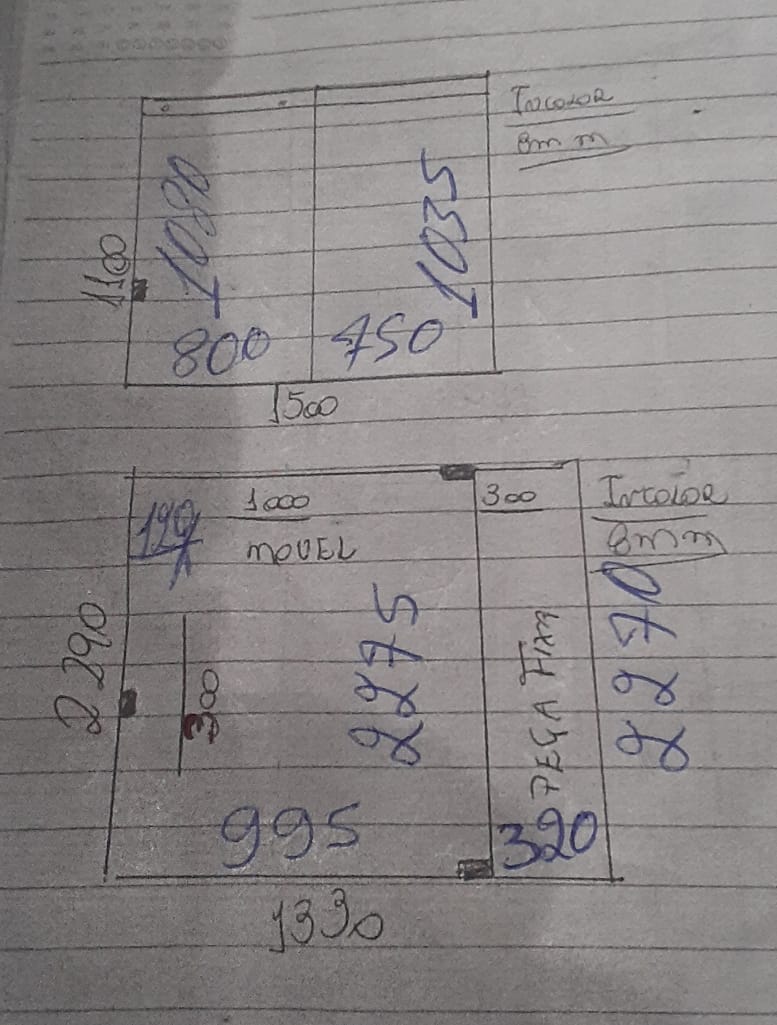 Incolor
8mm
1100
1080
1035
800
750
1500
1000
MOVEL
300
Incolor
8mm
2290
300
2275
PEÇA FIXA
2270
995
320
1330